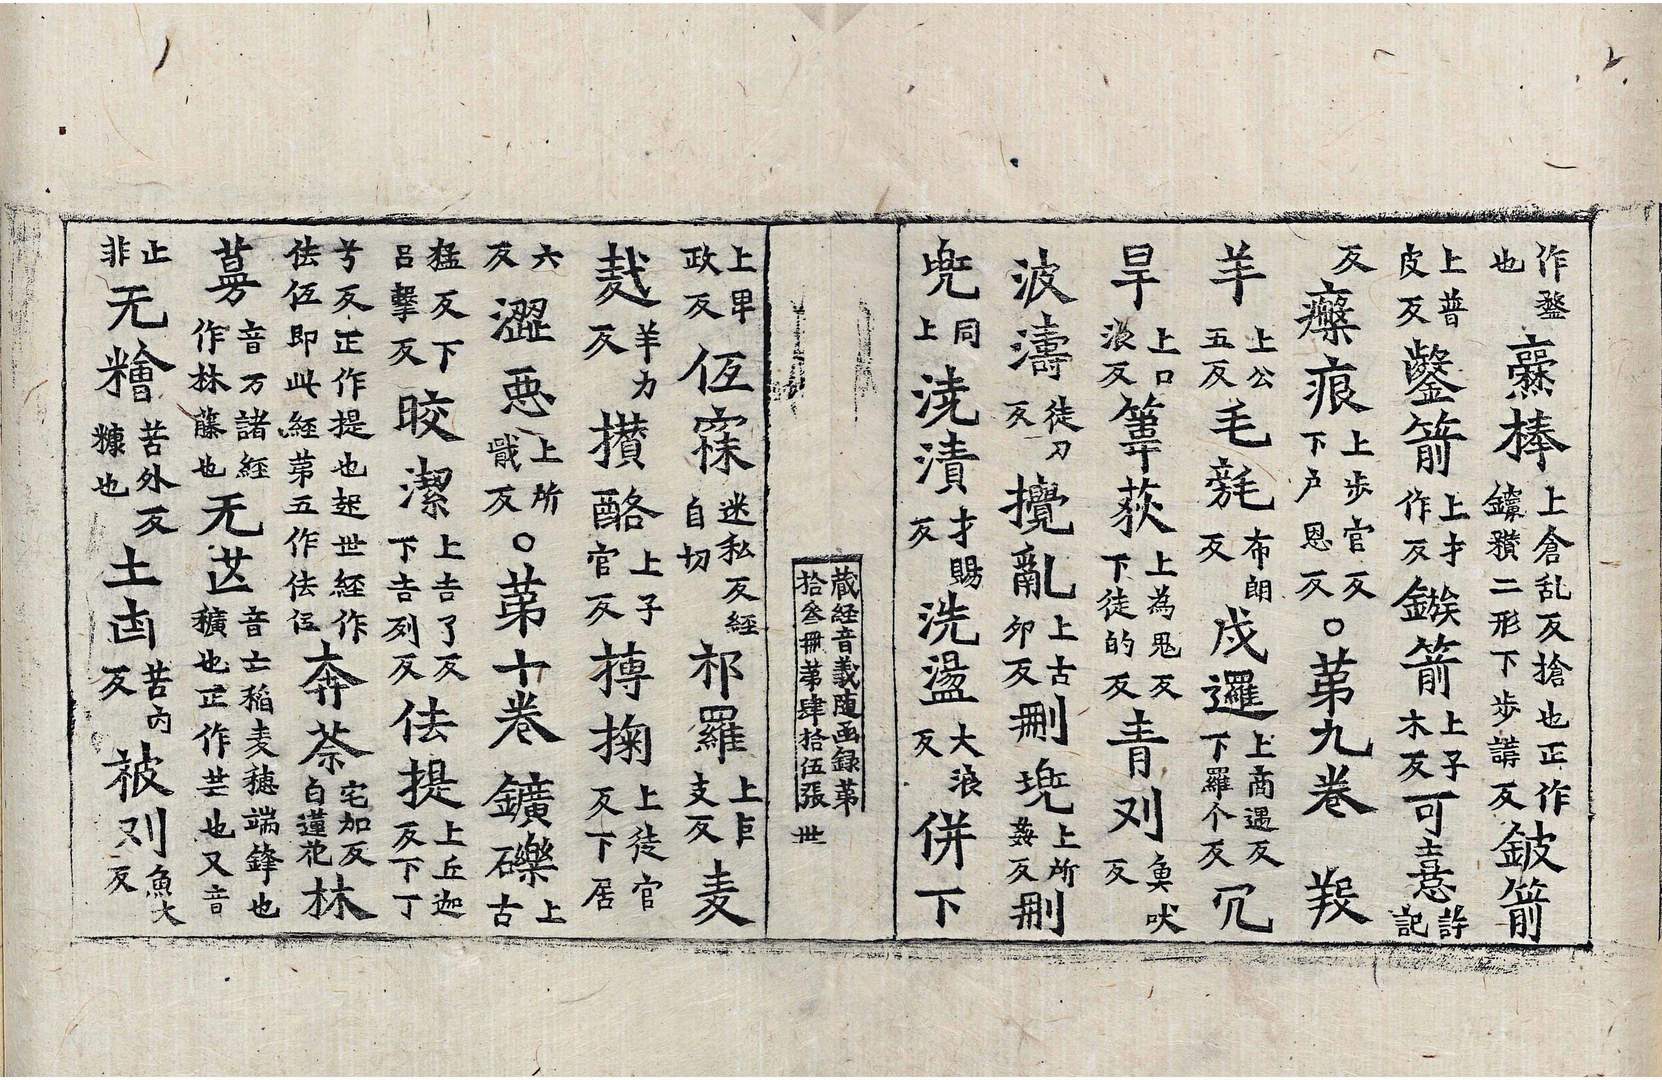 作鍪也𥎞棒上倉乱反搶也正作鑹䂎二形下步講反鈹箭
上普皮反鑿箭上才作反鏃箭上子木反可憙許記
反瘢痕上步官反下戶恩反○第九卷 羖
羊上公五反毛㲠布朗反戍邏上商遇反下羅个反冗
旱上口浪反葦荻上為鬼反下徒的反青刈魚吠反
波濤徒刀反攪亂上古卯反刪兠上所姦反刪
兠同上澆漬才賜反洗盪大浪反併下
藏経音義随函録苐拾叄冊苐肆拾伍張 世
上卑政反仾寐迷私反経自切祁羅上巨支反麦
䴬羊力反攅酪上子官反摶掬上徒官反下居
六反澀惡上所戢反○苐十卷 鑛礫上古
猛反下呂擊反皎潔上古了反下古列反佉提上丘迦反下丁
兮反正作提也起世経作佉仾即此経苐五作佉仾奔荼宅加反白蓮花林
蔓音万諸経作林藤也无芒音亡稲麦穗端鋒也又音穬也正作芒也
非正无糩苦外反糠也土卤苦內反被刈魚大反